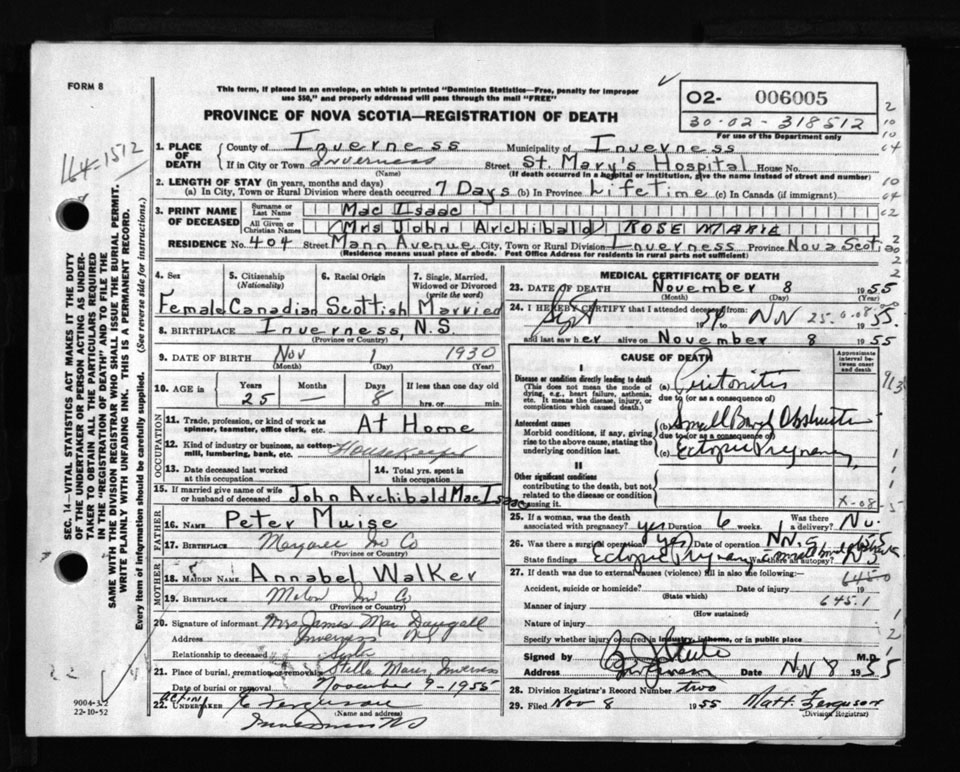 FORM 8
This form, if placed in an envelope, on which is printed "Dominion Statistics—Free, penalty for improper
use $50," and properly addressed will pass through the mail "FREE"
PROVINCE OF NOVA SCOTIA—REGISTRATION OF DEATH
02- 006005
30-02-318512
For use of the Department only
164-1512
SEC. 14—VITAL STATISTICS ACT MAKES IT THE DUTY
OF THE UNDERTAKER OR PERSON ACTING AS UNDER-
TAKER TO OBTAIN ALL THE PARTICULARS REQUIRED
IN THE "REGISTRATION OF DEATH" AND TO FILE THE
SAME WITH THE DIVISION REGISTRAR WHO SHALL ISSUE THE BURIAL PERMIT.
WRITE PLAINLY WITH UNFADING INK. THIS IS A PERMANENT RECORD.
Every item of information should be carefully supplied. (See reverse side for instructions.)
1. PLACE OF DEATH County of Inverness Municipality of Inverness
If in City or Town Inverness Street St. Mary's Hospital House No.
(Name) (If death occurred in a hospital or institution, give the name instead of street and number)
2. LENGTH OF STAY (in years, months and days)
(a) In City, Town or Rural Division where death occurred 7 Days (b) In Province Lifetime (c) In Canada (if immigrant)
3. PRINT NAME OF DECEASED Surname or Last Name Mac Isaac
All Given or Christian Names (Mrs John Archibald) ROSE MARIE
RESIDENCE No. 404 Street Mann Avenue City, Town or Rural Division Inverness Province Nova Scotia
(Residence means usual place of abode. Post Office Address for residents in rural parts not sufficient)
4. Sex 5. Citizenship (Nationality) 6. Racial Origin 7. Single, Married, Widowed or Divorced (write the word)
Female Canadian Scottish Married
8. BIRTHPLACE Inverness, N.S
(Province or Country)
9. DATE OF BIRTH Nov 1 1930
(Month) (Day) (Year)
10. AGE in Years Months Days If less than one day old
25 8 hrs. or min.
OCCUPATION
11. Trade, profession, or kind of work as spinner, teamster, office clerk, etc. At Home
12. Kind of industry or business, as cotton-mill, lumbering, bank, etc. Housekeeper
13. Date deceased last worked at this occupation 14. Total yrs. spent in this occupation
15. If married give name of wife or husband of deceased John Archibald Mac Isaac
FATHER
16. NAME Peter Muise
17. BIRTHPLACE Margaree Inv Co
(Province or Country)
MOTHER
18. MAIDEN NAME Annabel Walker
19. BIRTHPLACE Inv Co
(Province or Country)
20. Signature of informant Mrs James Mac Dougall
Address Inverness NS
Relationship to deceased Sister
21. Place of burial, cremation or removal Stella Maris Inverness
Date of burial or removal November 9-1955
22. Acting UNDERTAKER E Ferguson
(Name and address)
Inverness NS
9004-3/2
22-10-52
MEDICAL CERTIFICATE OF DEATH
23. DATE OF DEATH November 8 1955
(Month) (Day) (Year)
24. I HEREBY CERTIFY that I attended deceased from:
Sept 19 to Nov 1955
and last saw her alive on November 8 1955
CAUSE OF DEATH
Approximate interval between onset and death
I
Disease or condition directly leading to death
(This does not mean the mode of dying, e.g., heart failure, asthenia, etc. It means the disease, injury, or complication which caused death.)
(a) Peritonitis
due to (or as a consequence of)
Antecedent causes
Morbid conditions, if any, giving rise to the above cause, stating the underlying condition last.
(b) Small Bowel Obstruction
due to (or as a consequence of)
(c) Ectopic Pregnancy
II
Other significant conditions
contributing to the death, but not related to the disease or condition causing it.
X-08
25. If a woman, was the death associated with pregnancy? yes Duration 6 weeks. Was there a delivery? No.
26. Was there a surgical operation? yes Date of operation
State findings Ectopic Pregnancy Was there an autopsy? No
27. If death was due to external causes (violence) fill in also the following:—
Accident, suicide or homicide? Date of injury 19
(State which)
645.0
Manner of injury 645.1
(How sustained)
Nature of injury
Specify whether injury occurred in industry, in home, or in public place
Signed by M.D.
Address Inverness Date Nov 8 1955
28. Division Registrar's Record Number two
29. Filed Nov 8 1955 Matt. Ferguson
(Division Registrar)